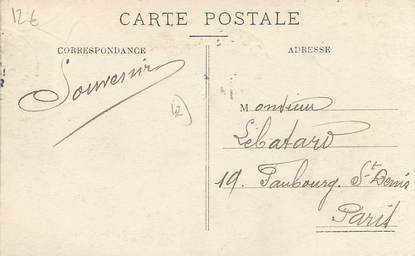 12€
CARTE POSTALE
CORRESPONDANCE
ADRESSE
Souvenir
Monsieur
Lebatard
19. Faubourg. St Denis
Paris